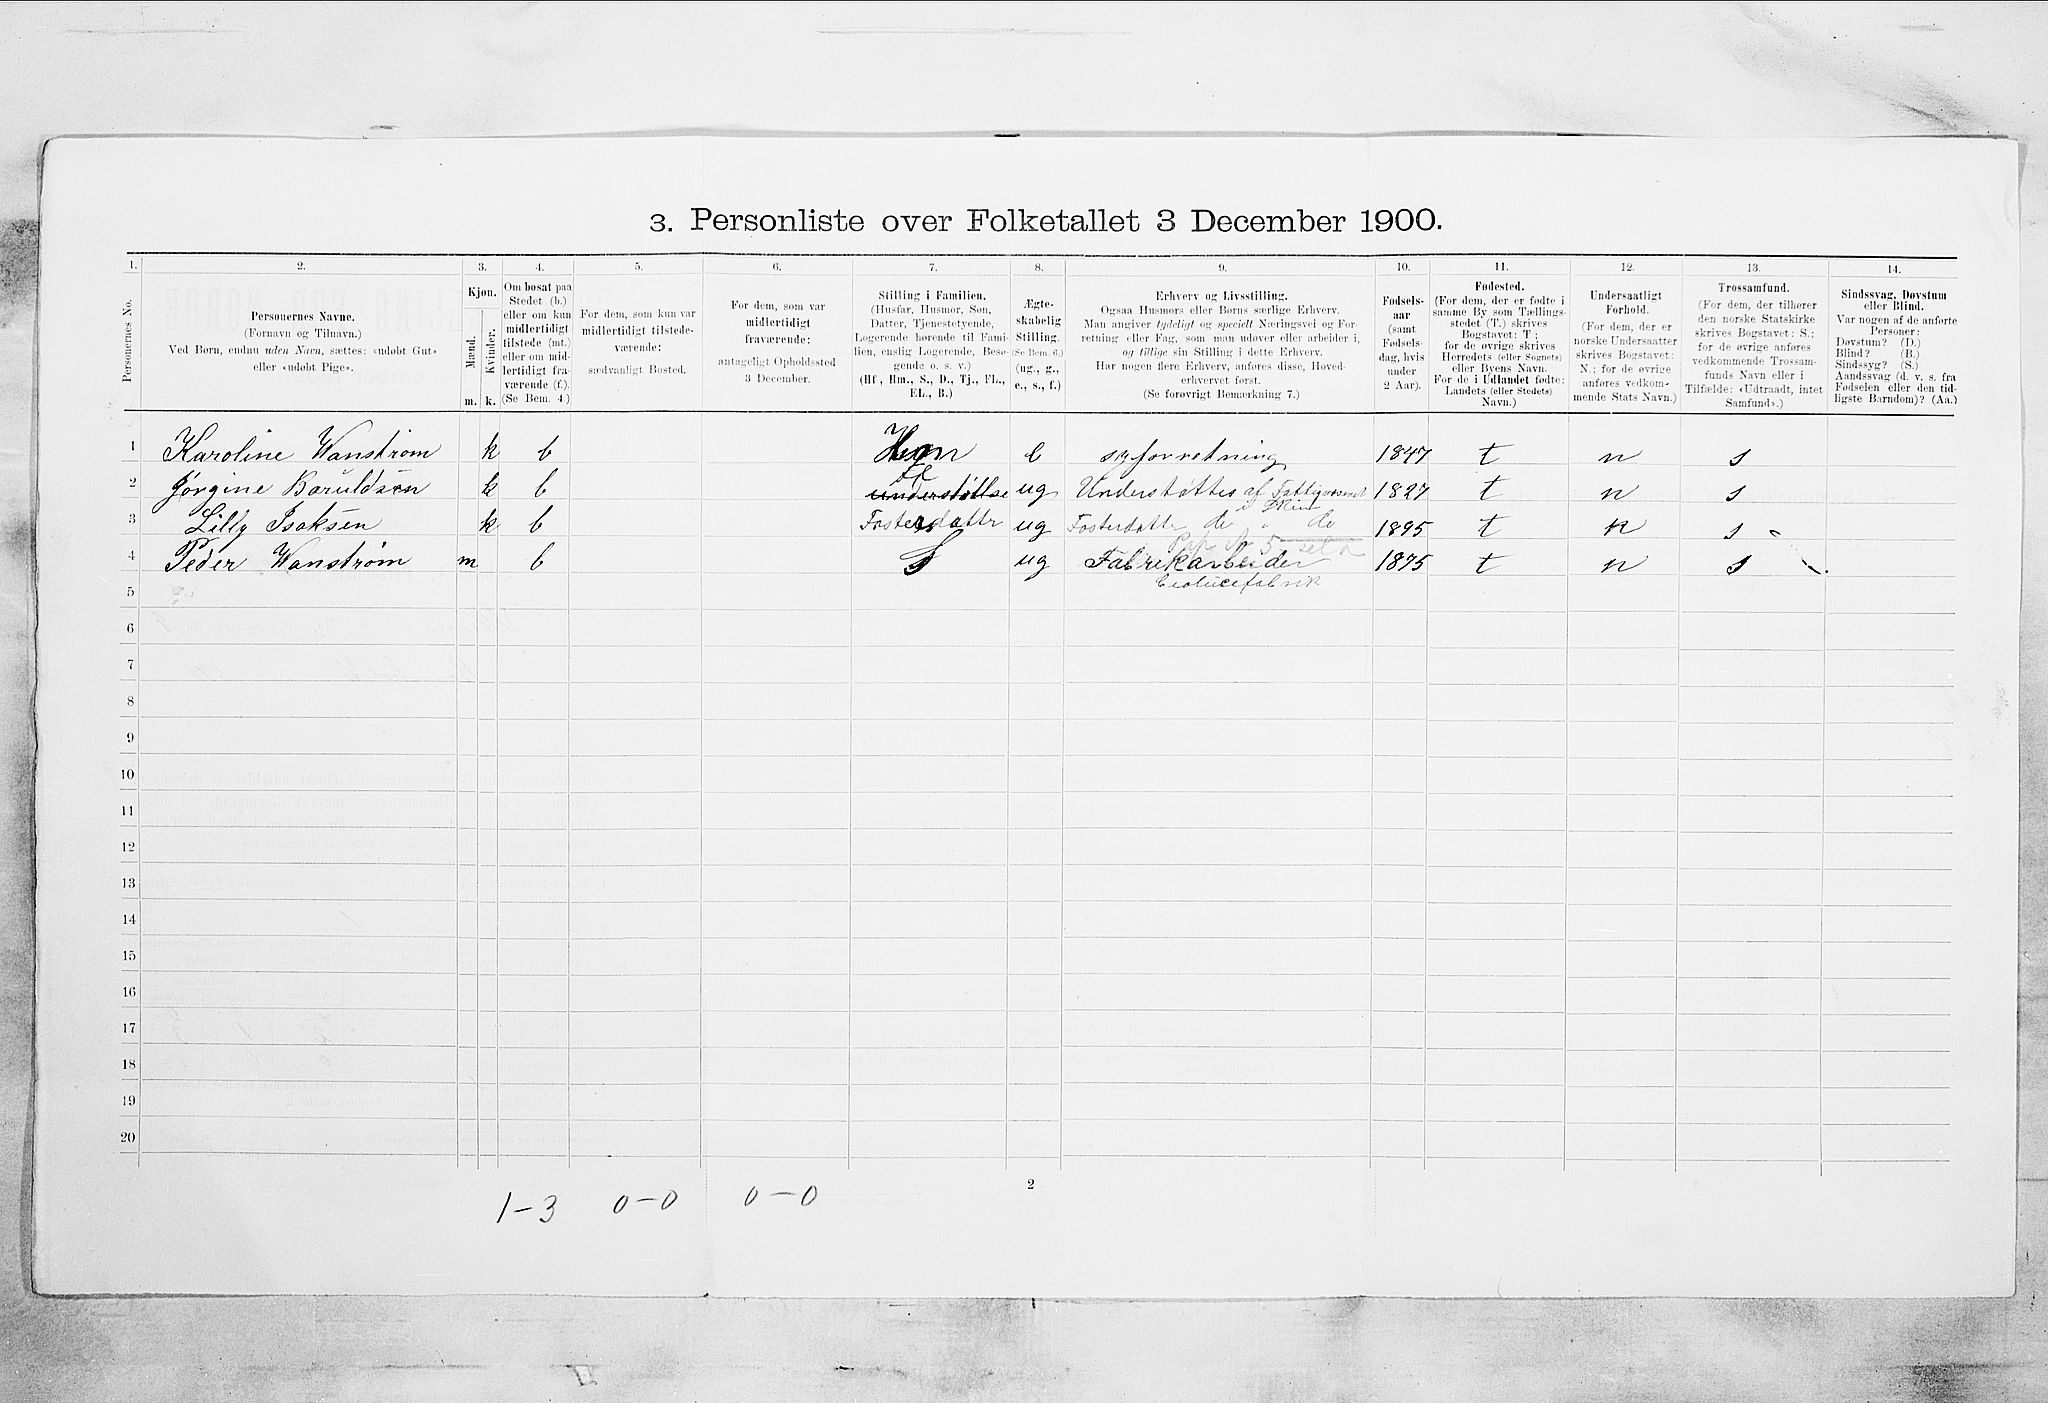 3. Personliste over Folketallet 3 December 1900.
1. 2. 3. 4. 5. 6. 7. 8. 9. 10. 11. 12. 13. 14.
Personernes No.
Personernes Navne.
(Fornavn og Tilnavn.)
Ved Børn, endnu uden Navn, sættes: «udøbt Gut»
eller «udøbt Pige».
Kjøn.
Mænd.
Kvinder.
m. k.
Om bosat paa
Stedet (b.)
eller om kun
midlertidigt
tilstede (mt.)
eller om mid-
lertidigt fra-
værende (f.).
(Se Bem. 4.)
For dem, som kun var
midlertidigt tilstede-
værende:
sædvanligt Bosted.
For dem, som var
midlertidigt
fraværende:
antageligt Opholdssted
3 December.
Stilling i Familien.
(Husfar, Husmor, Søn,
Datter, Tjenestetyende,
Logerende hørende til Fami-
lien, enslig Logerende, Besø-
gende o. s. v.)
(Hf., Hm., S., D., Tj., FL.,
EL., B.)
Ægte-
skabelig
Stilling.
(Se Bem. 6.)
(ug., g.,
e., s., f.)
Erhverv og Livsstilling.
Ogsaa Husmors eller Børns særlige Erhverv.
Man angiver tydeligt og specielt Næringsvei og For-
retning eller Fag, som man udøver eller arbeider i,
og tillige sin Stilling i dette Erhverv.
Har nogen flere Erhverv, anføres disse, Hoved-
erhvervet først.
(Se forøvrigt Bemærkning 7.)
Fødsels-
aar
(samt
Fødsels-
dag, hvis
under
2 Aar).
Fødested.
(For dem, der er fødte i
samme By som Tællings-
stedet (T.) skrives
Bogstavet: T;
for de øvrige skrives
Herredets (eller Sognets)
eller Byens Navn.
For de i Udlandet fødte:
Landets (eller Stedets)
Navn.)
Undersaatligt
Forhold.
(For dem, der er
norske Undersaatter
skrives Bogstavet:
N.; for de øvrige
anføres vedkom-
mende Stats Navn.)
Trossamfund.
(For dem, der tilhører
den norske Statskirke
skrives Bogstavet: S.;
for de øvrige anføres
vedkommende Trossam-
funds Navn eller i
Tilfælde: «Udtraadt, intet
Samfund».)
Sindssvag, Døvstum
eller Blind.
Var nogen af de anførte
Personer:
Døvstum? (D.)
Blind? (B.)
Sindssyg? (S.)
Aandssvag (d. v. s. fra
Fødselen eller den tid-
ligste Barndom)? (Aa.)
1 Karoline Wanstrøm k b Hm e syforretning 1847 t n s
2 Jørgine Baruldsen k b understøttlse ug Understøttes af Fattigvæsenet 1827 t n s
3 Lilly Isaksen k b Fosterdatter ug Fosterdatter do " do 1895 t n s
4 Peder Wanstrøm m b S ug Fabrikarbeider 1875 t n s
5
6
7
8
9
10
11
12
13
14
15
16
17
18
19
20
2
1-3 0-0 0-0